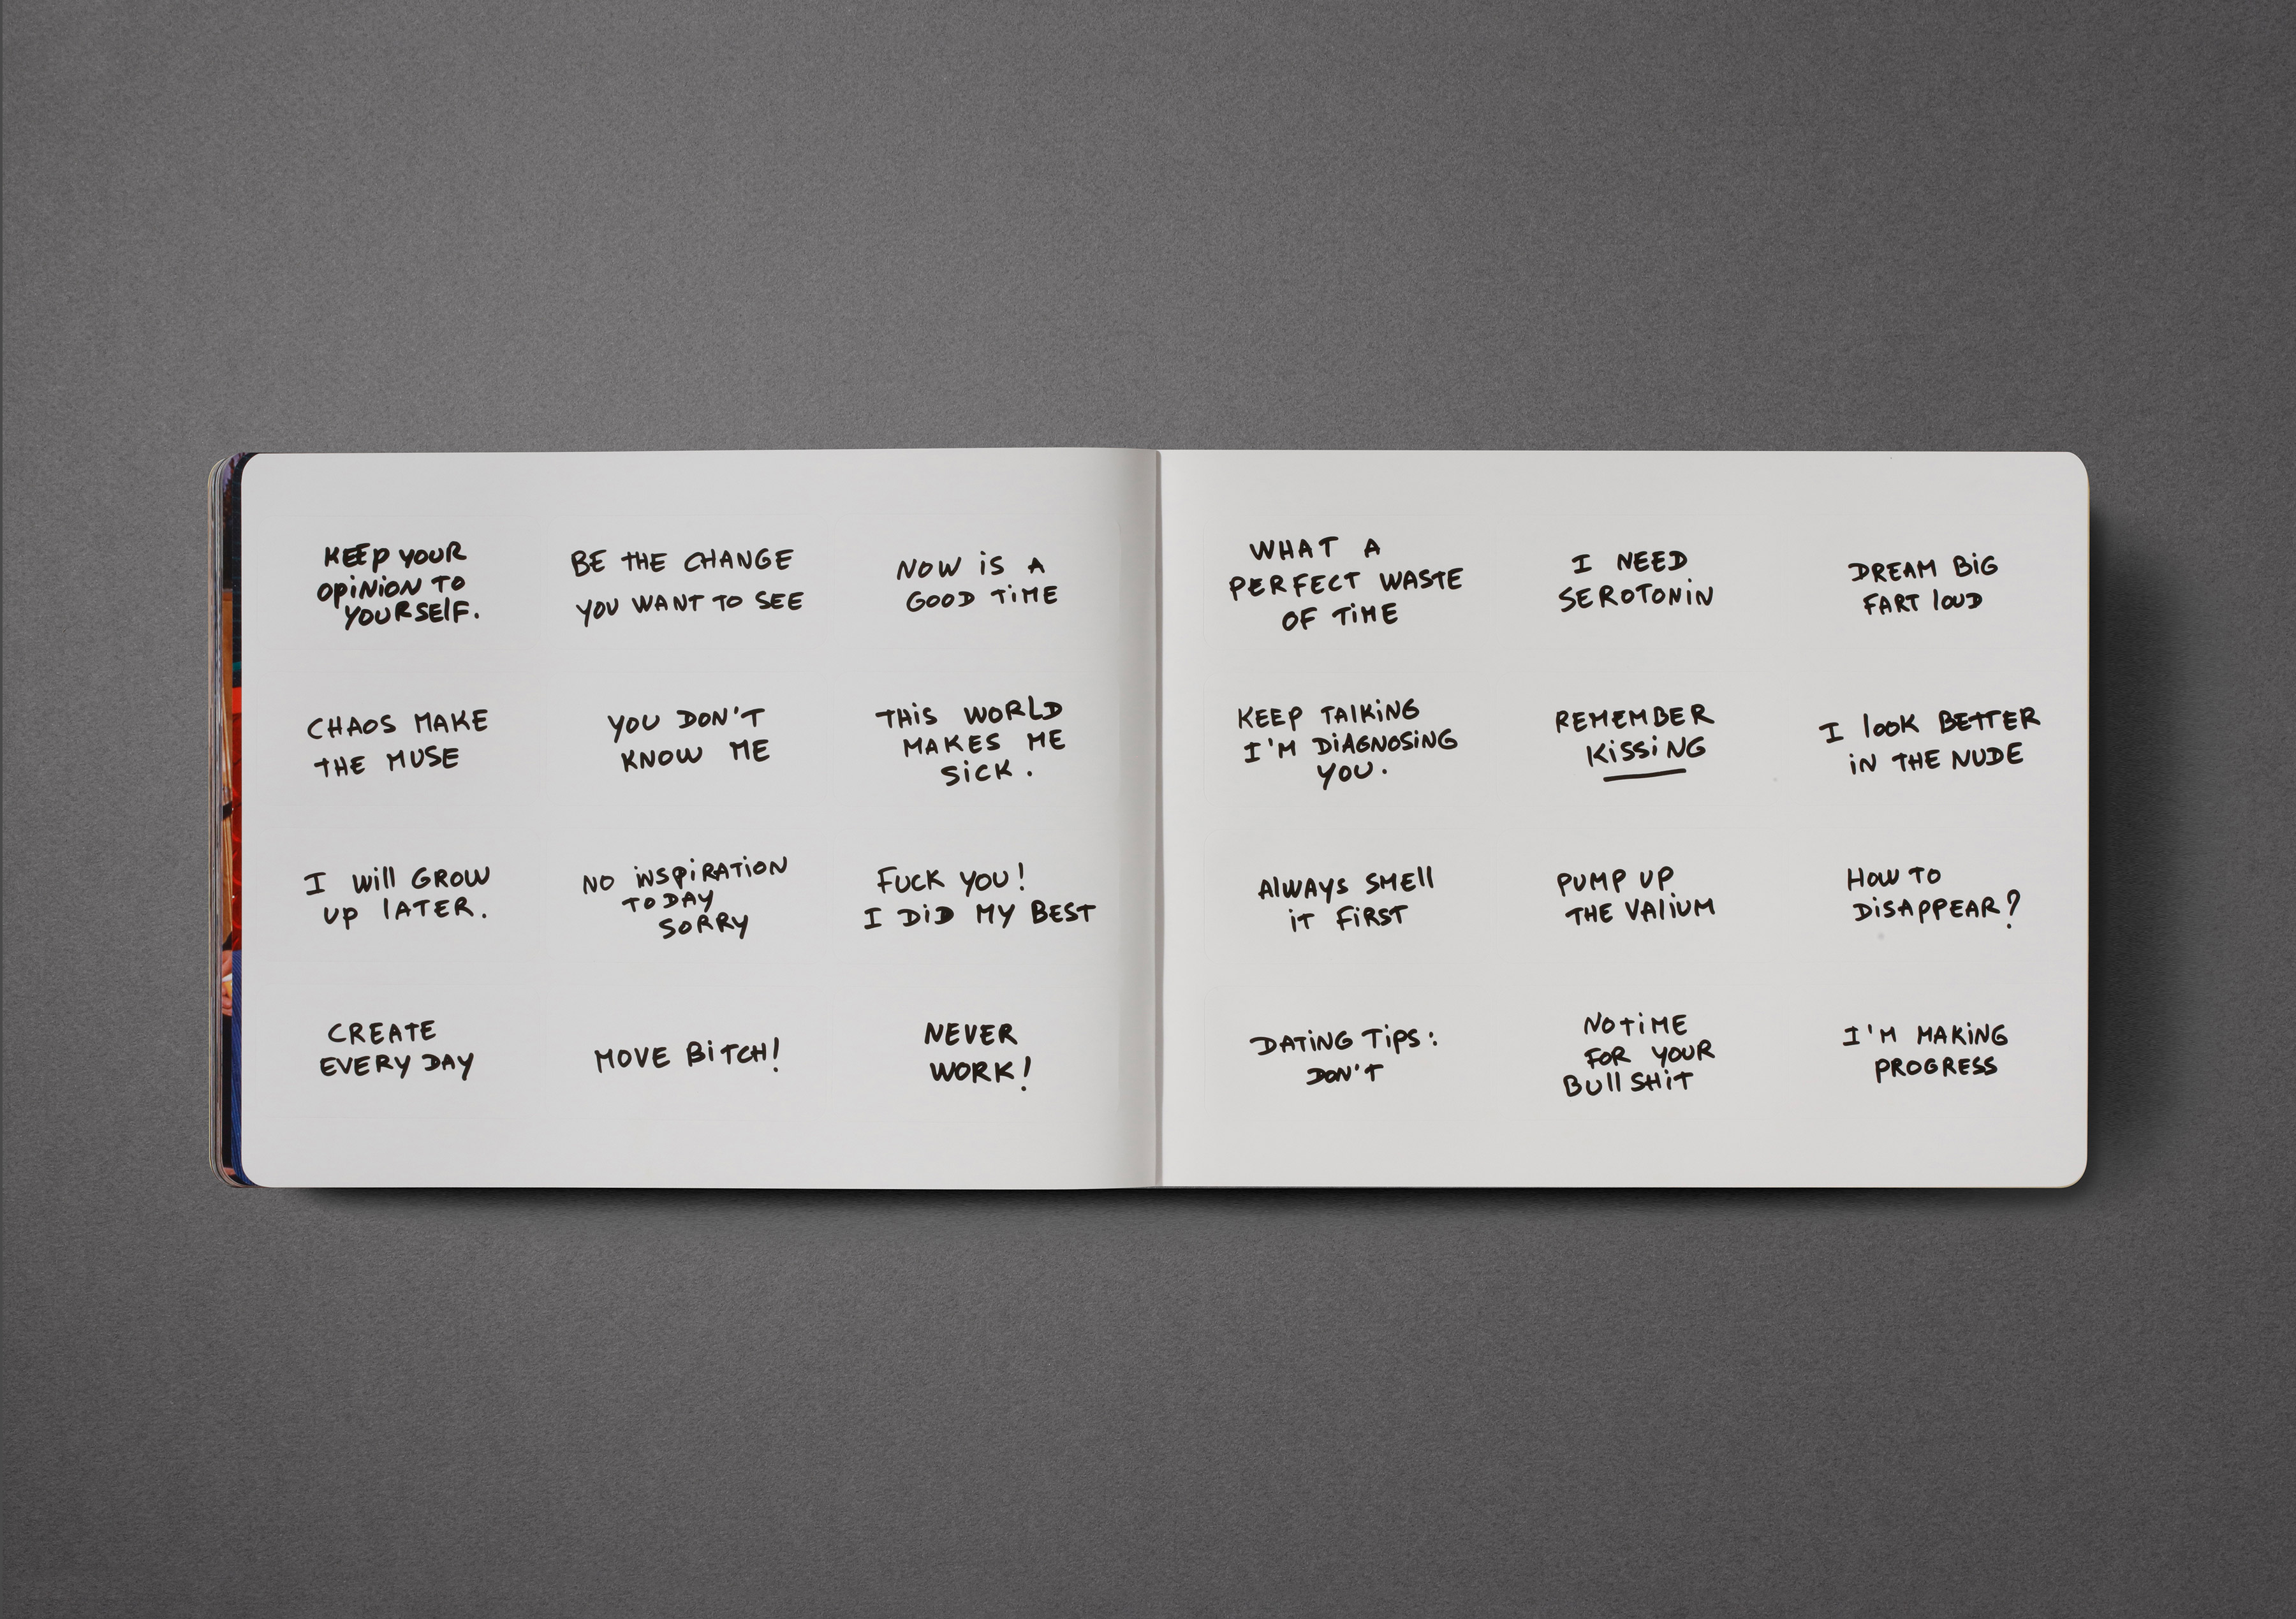 KEEP YOUR
OPINION TO
YOURSELF.
BE THE CHANGE
YOU WANT TO SEE
NOW IS A
GOOD TIME
CHAOS MAKE
THE MUSE
YOU DON'T
KNOW ME
THIS WORLD
MAKES ME
SICK.
I WILL GROW
UP LATER.
NO INSPIRATION
TODAY
SORRY
FUCK YOU!
I DID MY BEST
CREATE
EVERY DAY
MOVE BITCH!
NEVER
WORK!
WHAT A
PERFECT WASTE
OF TIME
I NEED
SEROTONIN
DREAM BIG
FART LOUD
KEEP TALKING
I'M DIAGNOSING
YOU.
REMEMBER
KISSING
I LOOK BETTER
IN THE NUDE
ALWAYS SMELL
IT FIRST
PUMP UP
THE VALIUM
HOW TO
DISAPPEAR?
DATING TIPS:
DON'T
NO TIME
FOR YOUR
BULLSHIT
I'M MAKING
PROGRESS